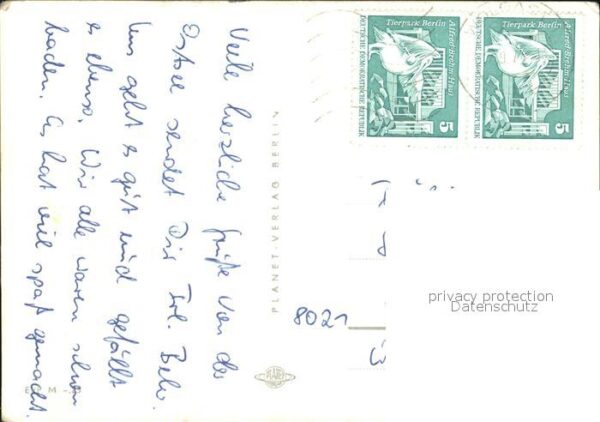 Viele herzliche Grüße von der
Ostsee sendet Dir Frl. Behr.
Uns geht es gut und gefällt
es ebenso. Wir alle waren schon
baden. Es hat viel spaß gemacht.
PLANET-VERLAG BERLIN
PLANET
8021
Tierpark Berlin
Alfred-Brehm-Haus
DEUTSCHE DEMOKRATISCHE REPUBLIK
5
Tierpark Berlin
Alfred-Brehm-Haus
DEUTSCHE DEMOKRATISCHE REPUBLIK
5
privacy protection
Datenschutz